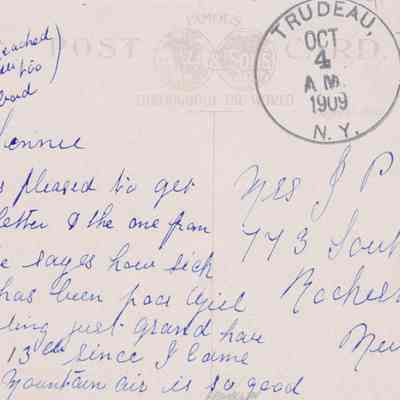 FAMOUS
POST CARD
& SONS
THROUGHOUT THE WORLD
TRUDEAU,
OCT
4
A M.
1909
N. Y.
eached
pleased to get
letter & the one from
sayes how sick
has been poor Girl
ling just grand have
13 since I came
Mountain air is so good
Mrs J P
773 Sout
Rochest
New